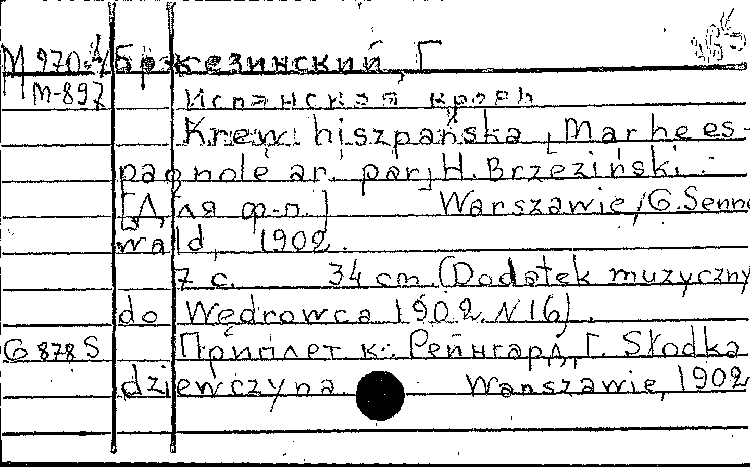 М 970-4 Бржезинский, Г
М-897 Испанская кровь
Krew hiszpańska, Marhe es-
pagnole ar. par H. Brzeziński.
[Для ф-п.] Warszawie, G. Senne
wald, 1902.
7 с. 34 cm. (Dodatek muzyczny
do Wędrowca 1902. N 16).
G 878 S Приплет к: Рейнгард, Г. Słodka
dziewczyna Warszawie, 1902